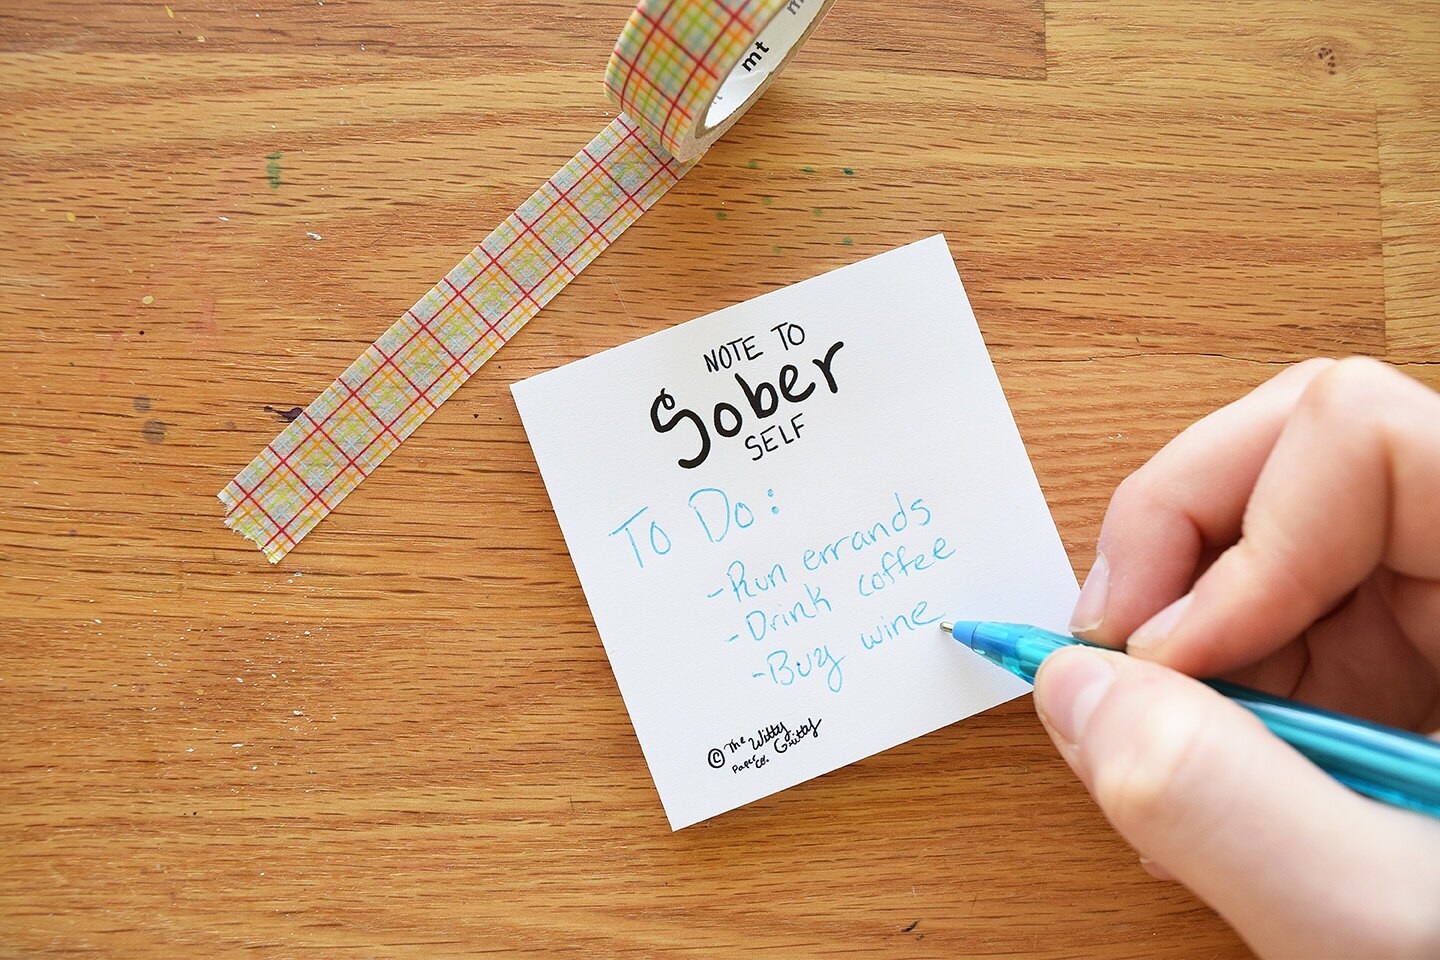 mt
NOTE TO
Sober
SELF
To Do:
-Run errands
-Drink coffee
-Buy wine
© The Witty Gritty
Paper Co.